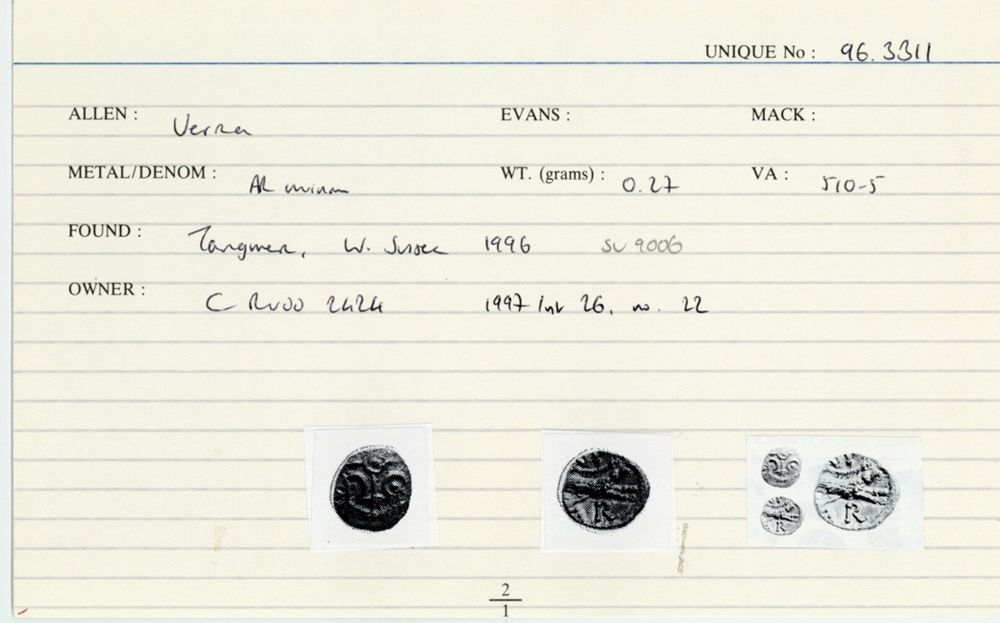 UNIQUE No : 96.3311
ALLEN : Verica EVANS : MACK :
METAL/DENOM : AR minim WT. (grams) : 0.27 VA : 510-5
FOUND : Tangmere, W. Sussex 1996 SU 9006
OWNER : C RUDD 2424 1997 list 26, no. 22
R
R
R
2
1